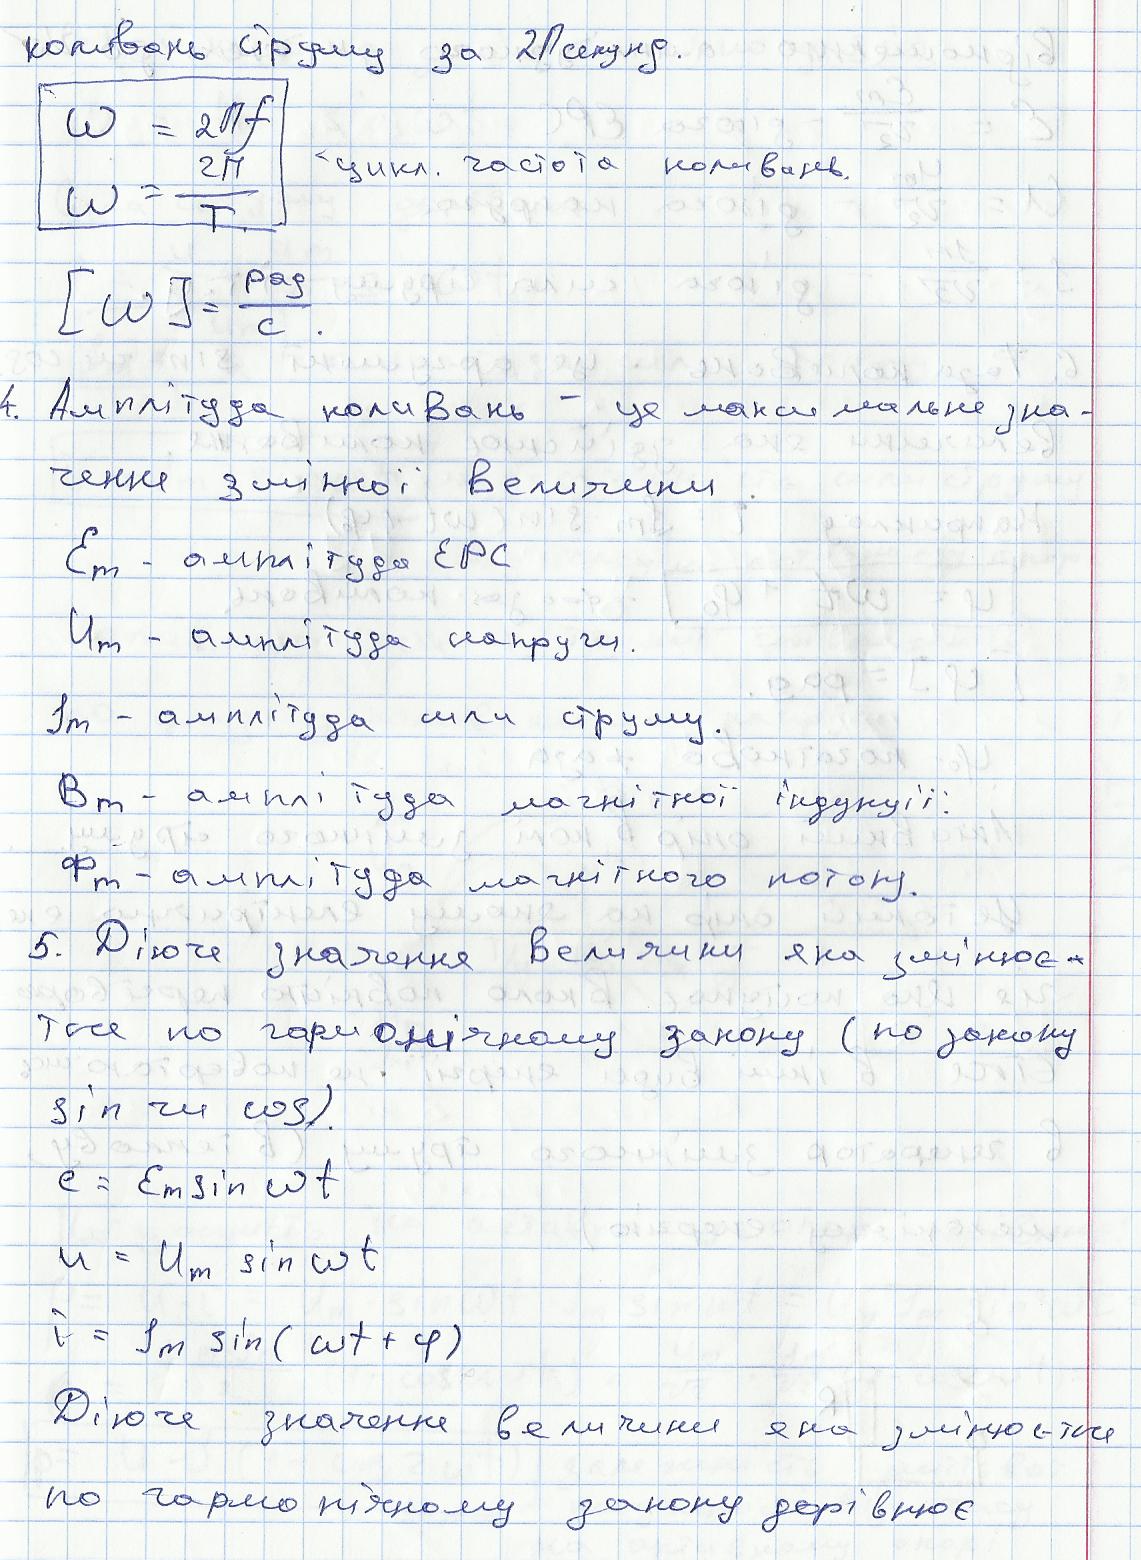 коливань струму за 2П секунд.
ω = 2Пf
ω = 2П/T
цикл. частота коливань.
[ω] = рад/с.
4. Амплітуда коливань - це максимальне зна-
чення змінної величини.
Ɛm - амплітуда ЕРС
Um - амплітуда напруги.
Im - амплітуда сили струму.
Bm - амплітуда магнітної індукції.
Фm - амплітуда магнітного потоку.
5. Діюче значення величини яка змінює-
ться по гармонічному закону (по закону
sin чи cos).
e = Ɛm sin ωt
u = Um sin ωt
i = Im sin(ωt + φ)
Діюче значення величини яка змінюється
по гармонічному закону дорівнює